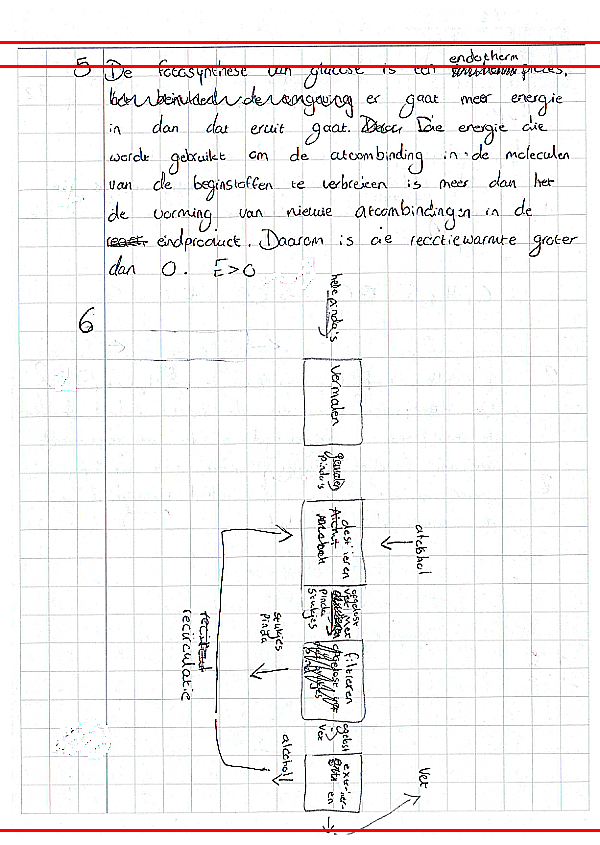 5 De fotosynthese van glucose is een endotherm proces,
er gaat meer energie
in dan dat eruit gaat. Die energie die
wordt gebruikt om de atoombinding in de moleculen
van de beginstoffen te verbreken is meer dan het
de vorming van nieuwe atoombindingen in de
eindproduct. Daarom is die reactiewarmte groter
dan 0. E>0
6
hele pinda's
vermalen
gemalen pinda's
alcohol
opgelost vet met pinda stukjes
filtreren
stukjes pinda
recirculatie
opgelost vet
alcohol
vet